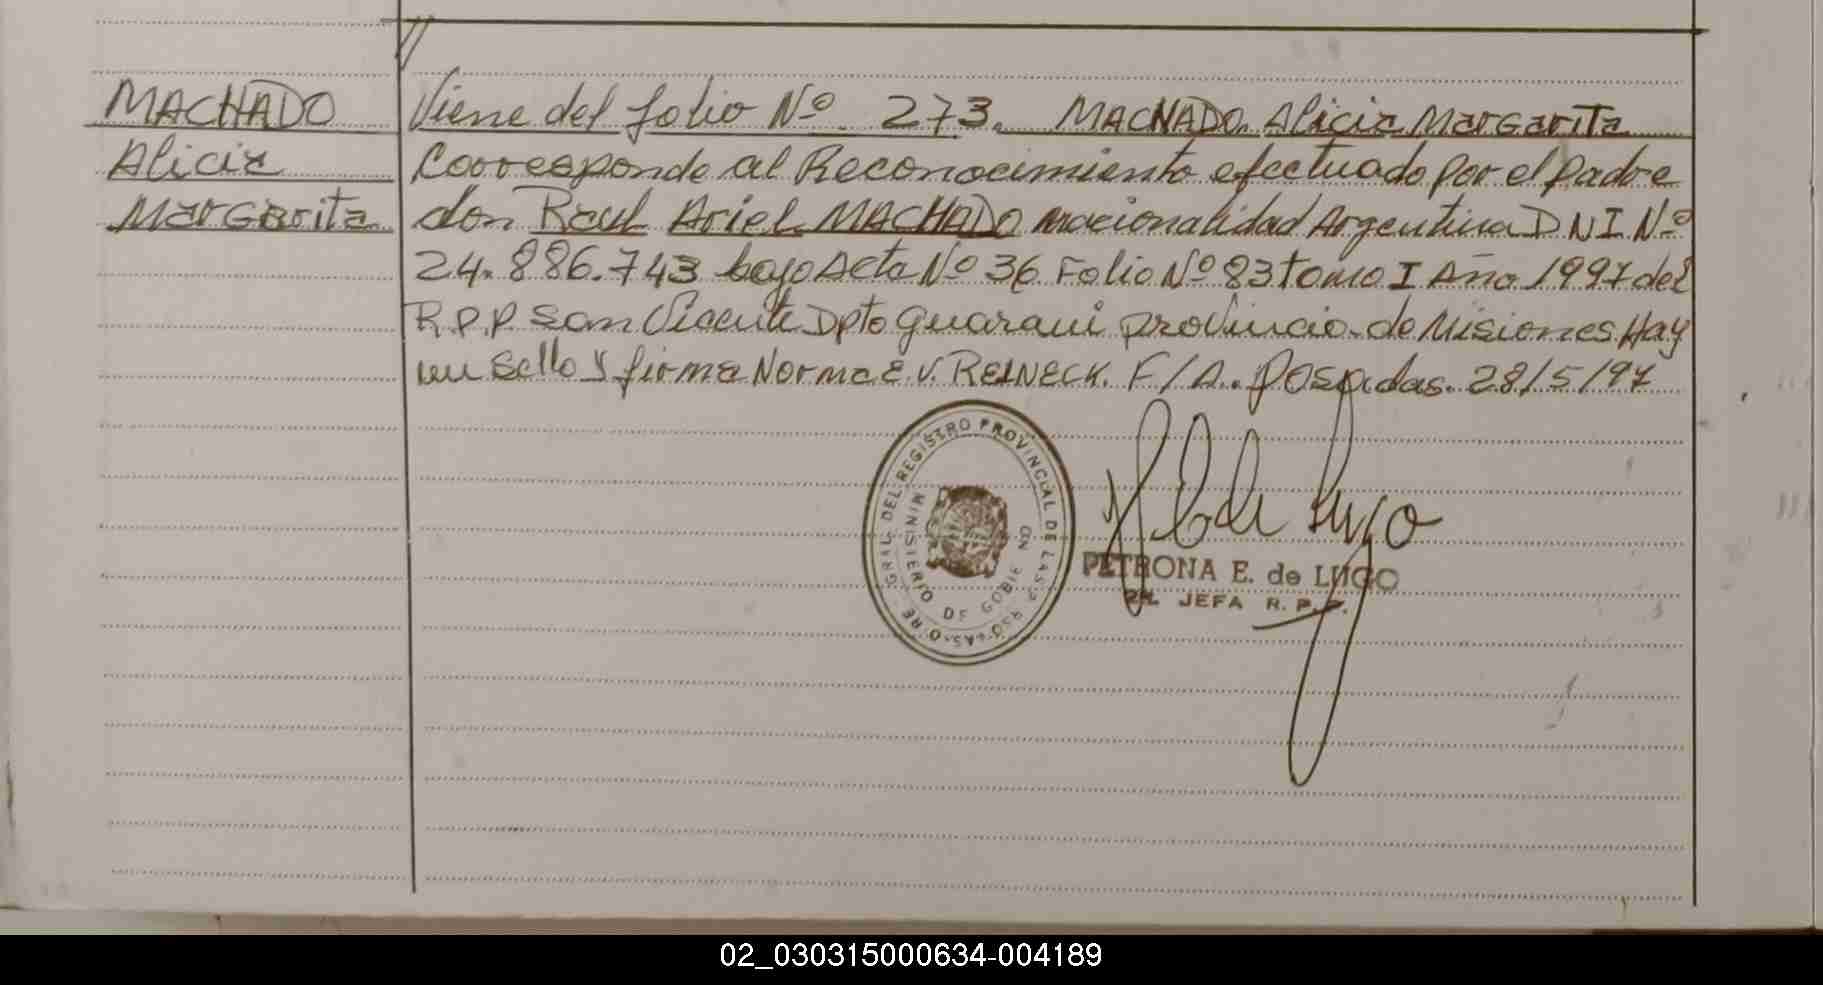 MACHADO
Alicia
Margarita
Viene del folio Nº 273. MACHADO Alicia Margarita
Corresponde al Reconocimiento efectuado por el padre
don Raul Ariel MACHADO nacionalidad Argentina DNI Nº
24.886.743 bajo Acta Nº 36 Folio Nº 83 tomo I Año 1997 del
R.P.P San Vicente Dpto Guarani provincia de Misiones Hay
un Sello y firma Norma E. V. REINECK. F/A. Posadas. 28/5/97
GRAL. DEL REGISTRO PROVINCIAL DE LAS
MINISTERIO DE GOBIE
PETRONA E. de LUGO
JEFA R. P. P.
02_030315000634-004189